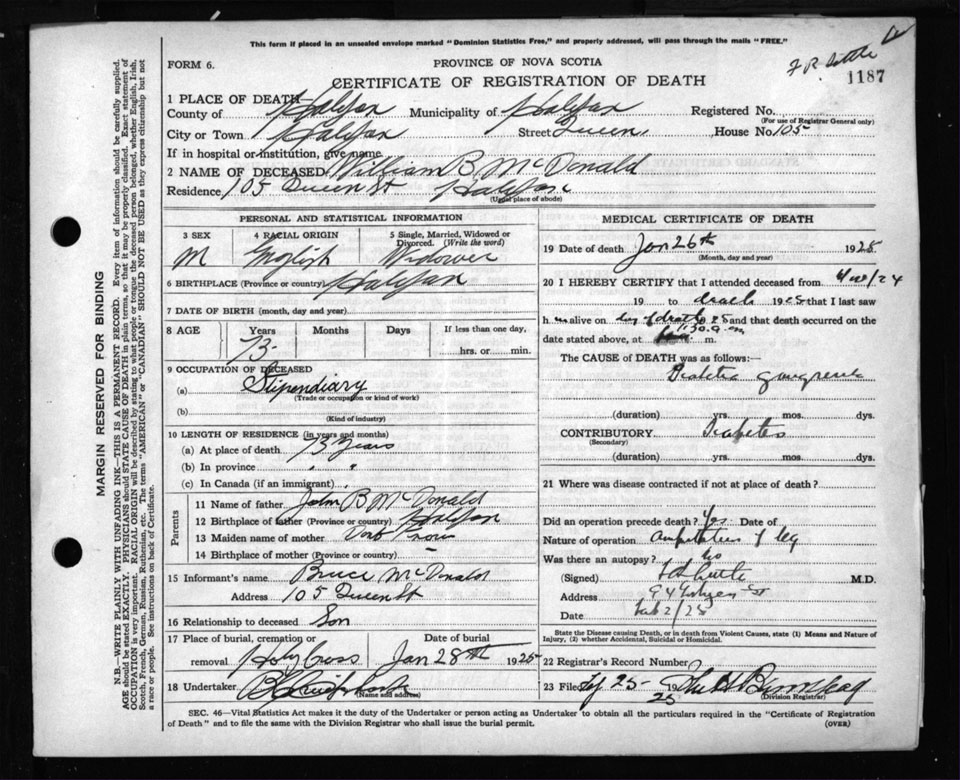 This form if placed in an unsealed envelope marked "Dominion Statistics Free," and properly addressed, will pass through the mails "FREE."
FORM 6.
PROVINCE OF NOVA SCOTIA
CERTIFICATE OF REGISTRATION OF DEATH
1187
1 PLACE OF DEATH—
County of Halifax Municipality of Halifax Registered No.
(For use of Registrar General only)
City or Town Halifax Street Queen House No. 105
If in hospital or institution, give name
2 NAME OF DECEASED William B. McDonald
Residence 105 Queen St Halifax
(Usual place of abode)
PERSONAL AND STATISTICAL INFORMATION
3 SEX 4 RACIAL ORIGIN 5 Single, Married, Widowed or Divorced. (Write the word)
M English Widower
6 BIRTHPLACE (Province or country) Halifax
7 DATE OF BIRTH (month, day and year)
8 AGE Years Months Days If less than one day,
73 hrs. or min.
9 OCCUPATION OF DECEASED
(a) Stipendiary
(Trade or occupation or kind of work)
(b)
(Kind of industry)
10 LENGTH OF RESIDENCE (in years and months)
(a) At place of death 73 years
(b) In province " "
(c) In Canada (if an immigrant)
Parents
11 Name of father John B McDonald
12 Birthplace of father (Province or country) Halifax
13 Maiden name of mother Dont know
14 Birthplace of mother (Province or country) –
15 Informant's name Bruce McDonald
Address 105 Queen St
16 Relationship to deceased Son
17 Place of burial, cremation or Date of burial
removal Holy Cross Jan 28th 1925
18 Undertaker
(Name and address)
MEDICAL CERTIFICATE OF DEATH
19 Date of death Jan 26th 1925
(Month, day and year)
20 I HEREBY CERTIFY that I attended deceased from
19 to death 1925 that I last saw
h m alive on day of death 1925 and that death occurred on the
date stated above, at m.
The CAUSE of DEATH was as follows:
Diabetic gangrene
(duration) yrs. mos. dys.
CONTRIBUTORY Diabetes
(Secondary)
(duration) yrs. mos. dys.
21 Where was disease contracted if not at place of death?
Did an operation precede death? Yes Date of
Nature of operation Amputation of leg
Was there an autopsy? No
(Signed) M.D.
Address
Date Feb 2/25
State the Disease causing Death, or in death from Violent Causes, state (1) Means and Nature of
Injury, (2) whether Accidental, Suicidal or Homicidal.
22 Registrar's Record Number
23 Filed
(Division Registrar)
SEC. 46—Vital Statistics Act makes it the duty of the Undertaker or person acting as Undertaker to obtain all the particulars required in the "Certificate of Registration
of Death" and to file the same with the Division Registrar who shall issue the burial permit.
(OVER)
MARGIN RESERVED FOR BINDING
N.B.—WRITE PLAINLY WITH UNFADING INK—THIS IS A PERMANENT RECORD. Every item of information should be carefully supplied.
AGE should be stated EXACTLY. PHYSICIANS should STATE CAUSE OF DEATH in plain terms, so that it may be properly classified. Exact statement of
OCCUPATION is very important. RACIAL ORIGIN will be described by stating to what people or tongue the deceased person belonged, whether English, Irish,
Scotch, French, German, Russian, Ruthenian, etc. The terms "AMERICAN" or "CANADIAN" SHOULD NOT BE USED as they express citizenship but not
a race or people. See instructions on back of Certificate.